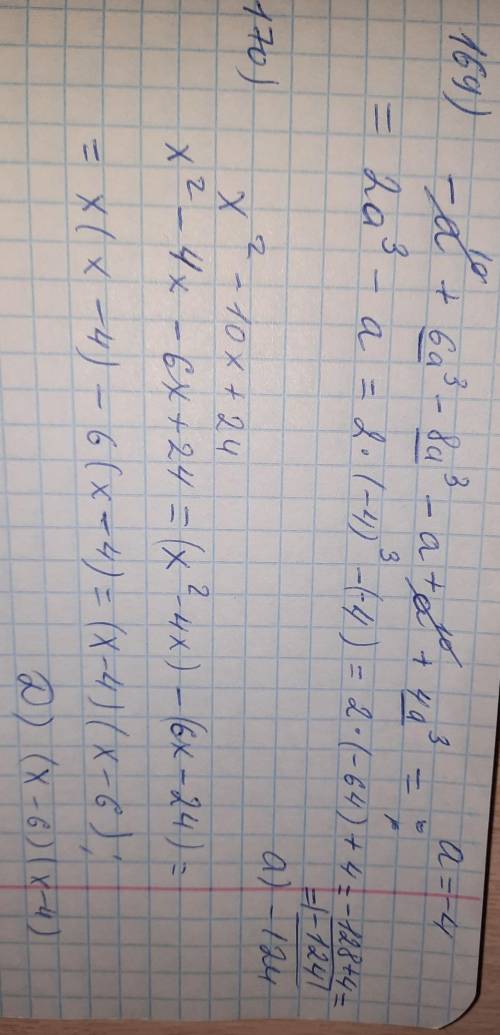 169) -a¹⁰ + 6a³ - 8a³ - a + a¹⁰ + 4a³ = a = -4
= 2a³ - a = 2·(-4)³ - (-4) = 2·(-64) + 4 = -128 + 4 =
= |-124|
a) -124
170)
x² - 10x + 24
x² - 4x - 6x + 24 = (x² - 4x) - (6x - 24) =
= x(x - 4) - 6(x - 4) = (x - 4)(x - 6);
2) (x - 6)(x - 4)